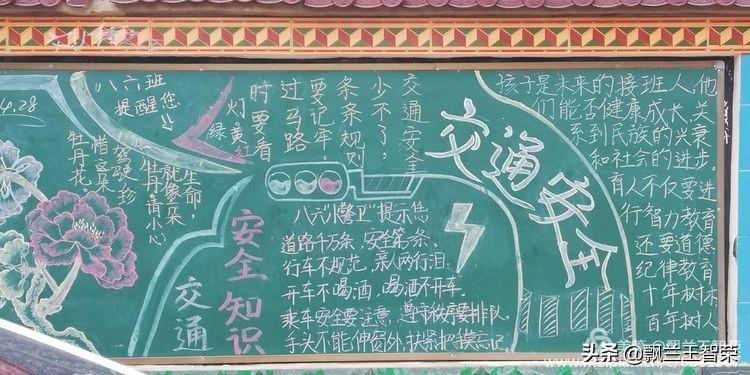 4.28
八六班
提醒您
生命，
就像朵
牡丹请小心
驾驶，珍
惜每朵
牡丹花
交通安全
少不了，
条条规则
要记牢，
过马路
时要看
灯。黄红
绿
交通
安全知识
八六"小警卫"提示您
道路千万条，安全第一条，
行车不规范，亲人两行泪。
开车不喝酒，喝酒不开车。
乘车安全要注意，遵守秩序要排队。
手头不能伸窗外，扶紧把手莫忘记。
交通安全
孩子是未来的接班人，他
们能否健康成长，关
系到民族的兴衰
和社会的进步。
育人不仅要进
行智力教育
还要道德
纪律教育
十年树木
百年树人
头条@飘兰王智荣